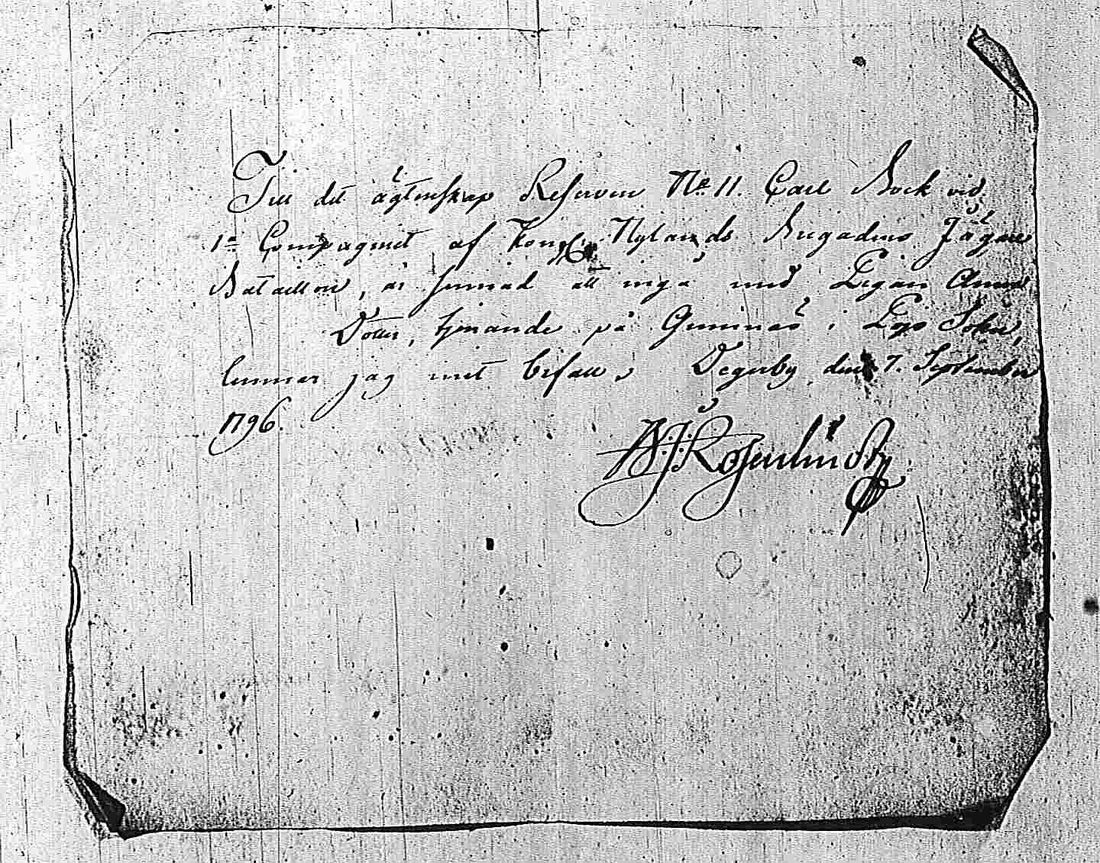 Till det ägtenskap Reserven No 11. Carl Bock vid
1a Compagniet af Kongl Nylands Brigadens Jägare
Bataillon, är sinnad att ingå med Pigan Anna
Dotter, tjenande på Gunnäs i Esbo Sokn,
lemnar jag mit bifall. Degerby den 7. September
1796.